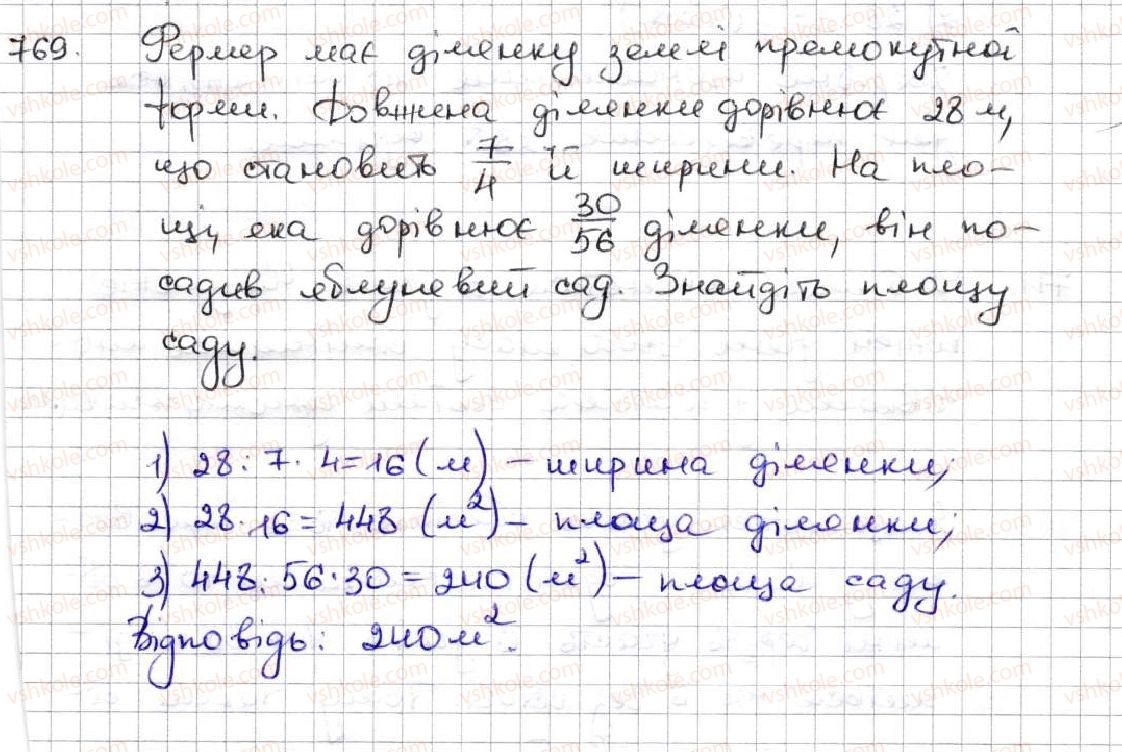 769. Фермер має ділянку землі прямокутної
форми. Довжина ділянки дорівнює 28 м,
що становить 7/4 її ширини. На пло-
щі, яка дорівнює 30/56 ділянки, він по-
садив яблуневий сад. Знайдіть площу
саду.
1) 28 : 7 · 4 = 16 (м) – ширина ділянки;
2) 28 · 16 = 448 (м²) – площа ділянки;
3) 448 : 56 · 30 = 240 (м²) – площа саду.
Відповідь: 240 м².